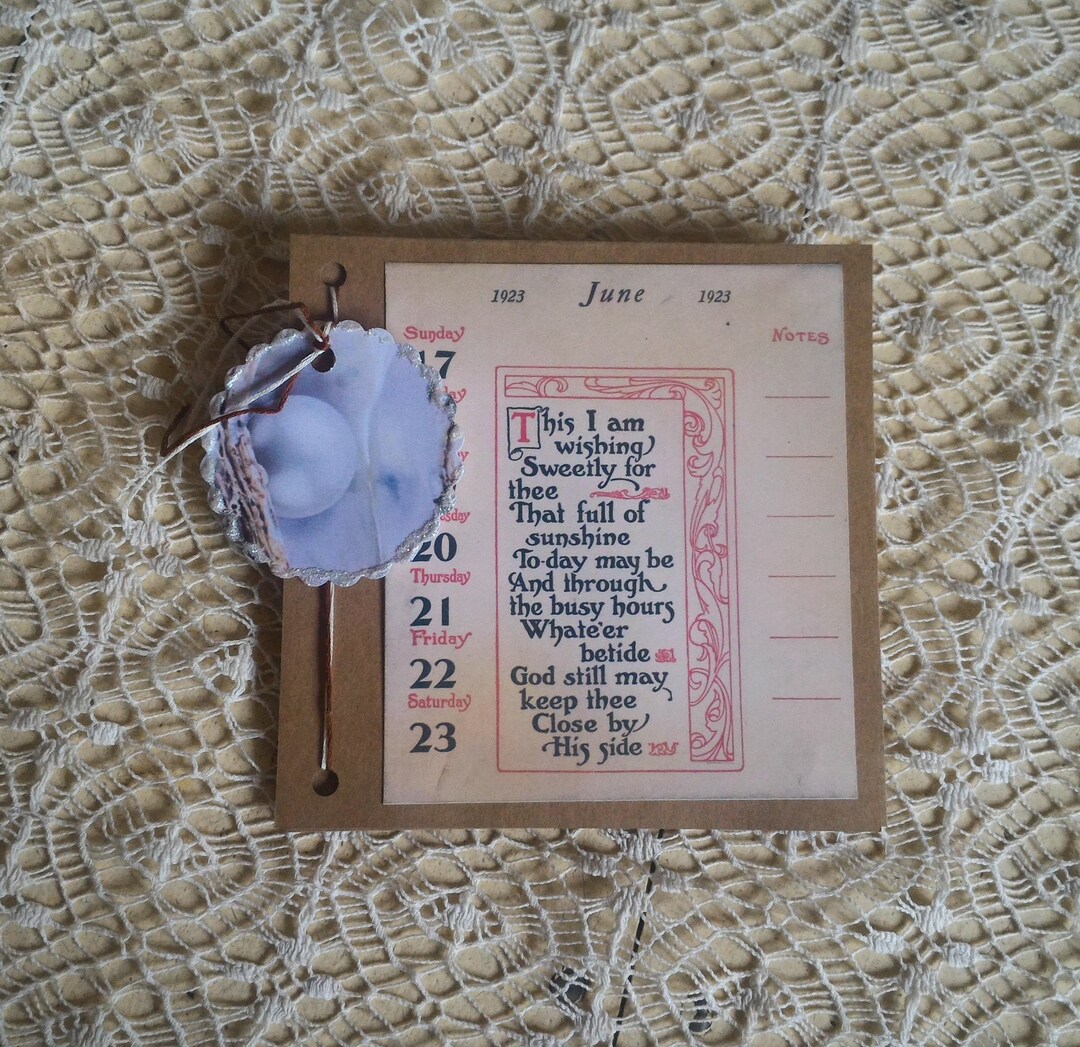 1923 June 1923
Sunday
17
NOTES
This I am
wishing
Sweetly for
thee
That full of
sunshine
To-day may be
And through
the busy hours
Whate'er
betide
God still may
keep thee
Close by
His side
20
Thursday
21
Friday
22
Saturday
23